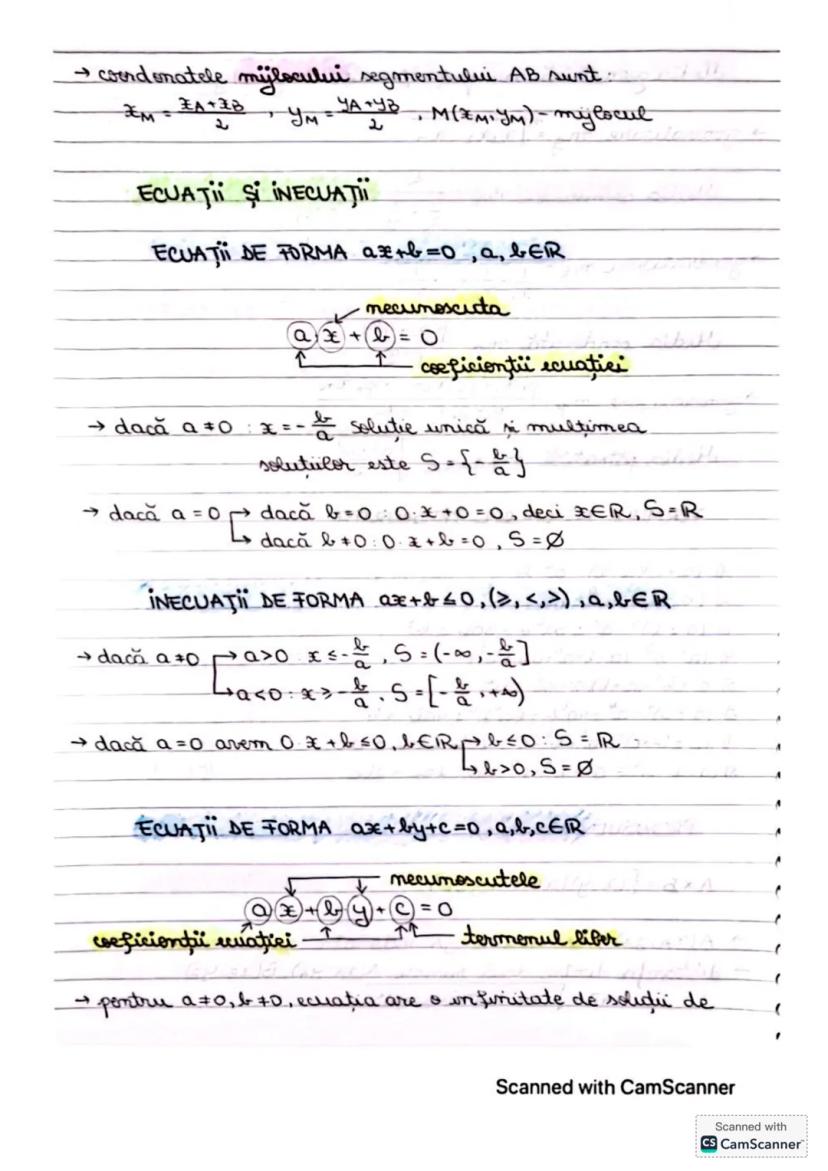 → coordonatele mijlocului segmentului AB sunt:
x_M = (x_A + x_B)/2 , y_M = (y_A + y_B)/2 , M(x_M, y_M) - mijlocul
ECUAȚII ȘI INECUAȚII
ECUAȚII DE FORMA ax+b=0 , a, b∈R
necunoscuta
a·x + b = 0
coeficienții ecuației
→ dacă a ≠ 0 : x = -b/a soluție unică și mulțimea
soluțiilor este S = {-b/a}
→ dacă a = 0 → dacă b = 0 : 0·x + 0 = 0, deci x∈R, S = R
↳ dacă b ≠ 0 : 0·x + b = 0 , S = Ø
INECUAȚII DE FORMA ax+b ≤ 0, (≥, <, >) , a, b∈R
→ dacă a ≠ 0 → a>0 : x ≤ -b/a , S = (-∞, -b/a]
↳ a<0 : x ≥ -b/a , S = [-b/a, +∞)
→ dacă a = 0 avem 0·x + b ≤ 0, b∈R → b ≤ 0 : S = R
↳ b>0, S = Ø
ECUAȚII DE FORMA ax+by+c=0 , a, b, c∈R
necunoscutele
a x + b y + c = 0
coeficienții ecuației termenul liber
→ pentru a ≠ 0, b ≠ 0, ecuația are o infinitate de soluții de
Scanned with CamScanner
Scanned with
CS CamScanner